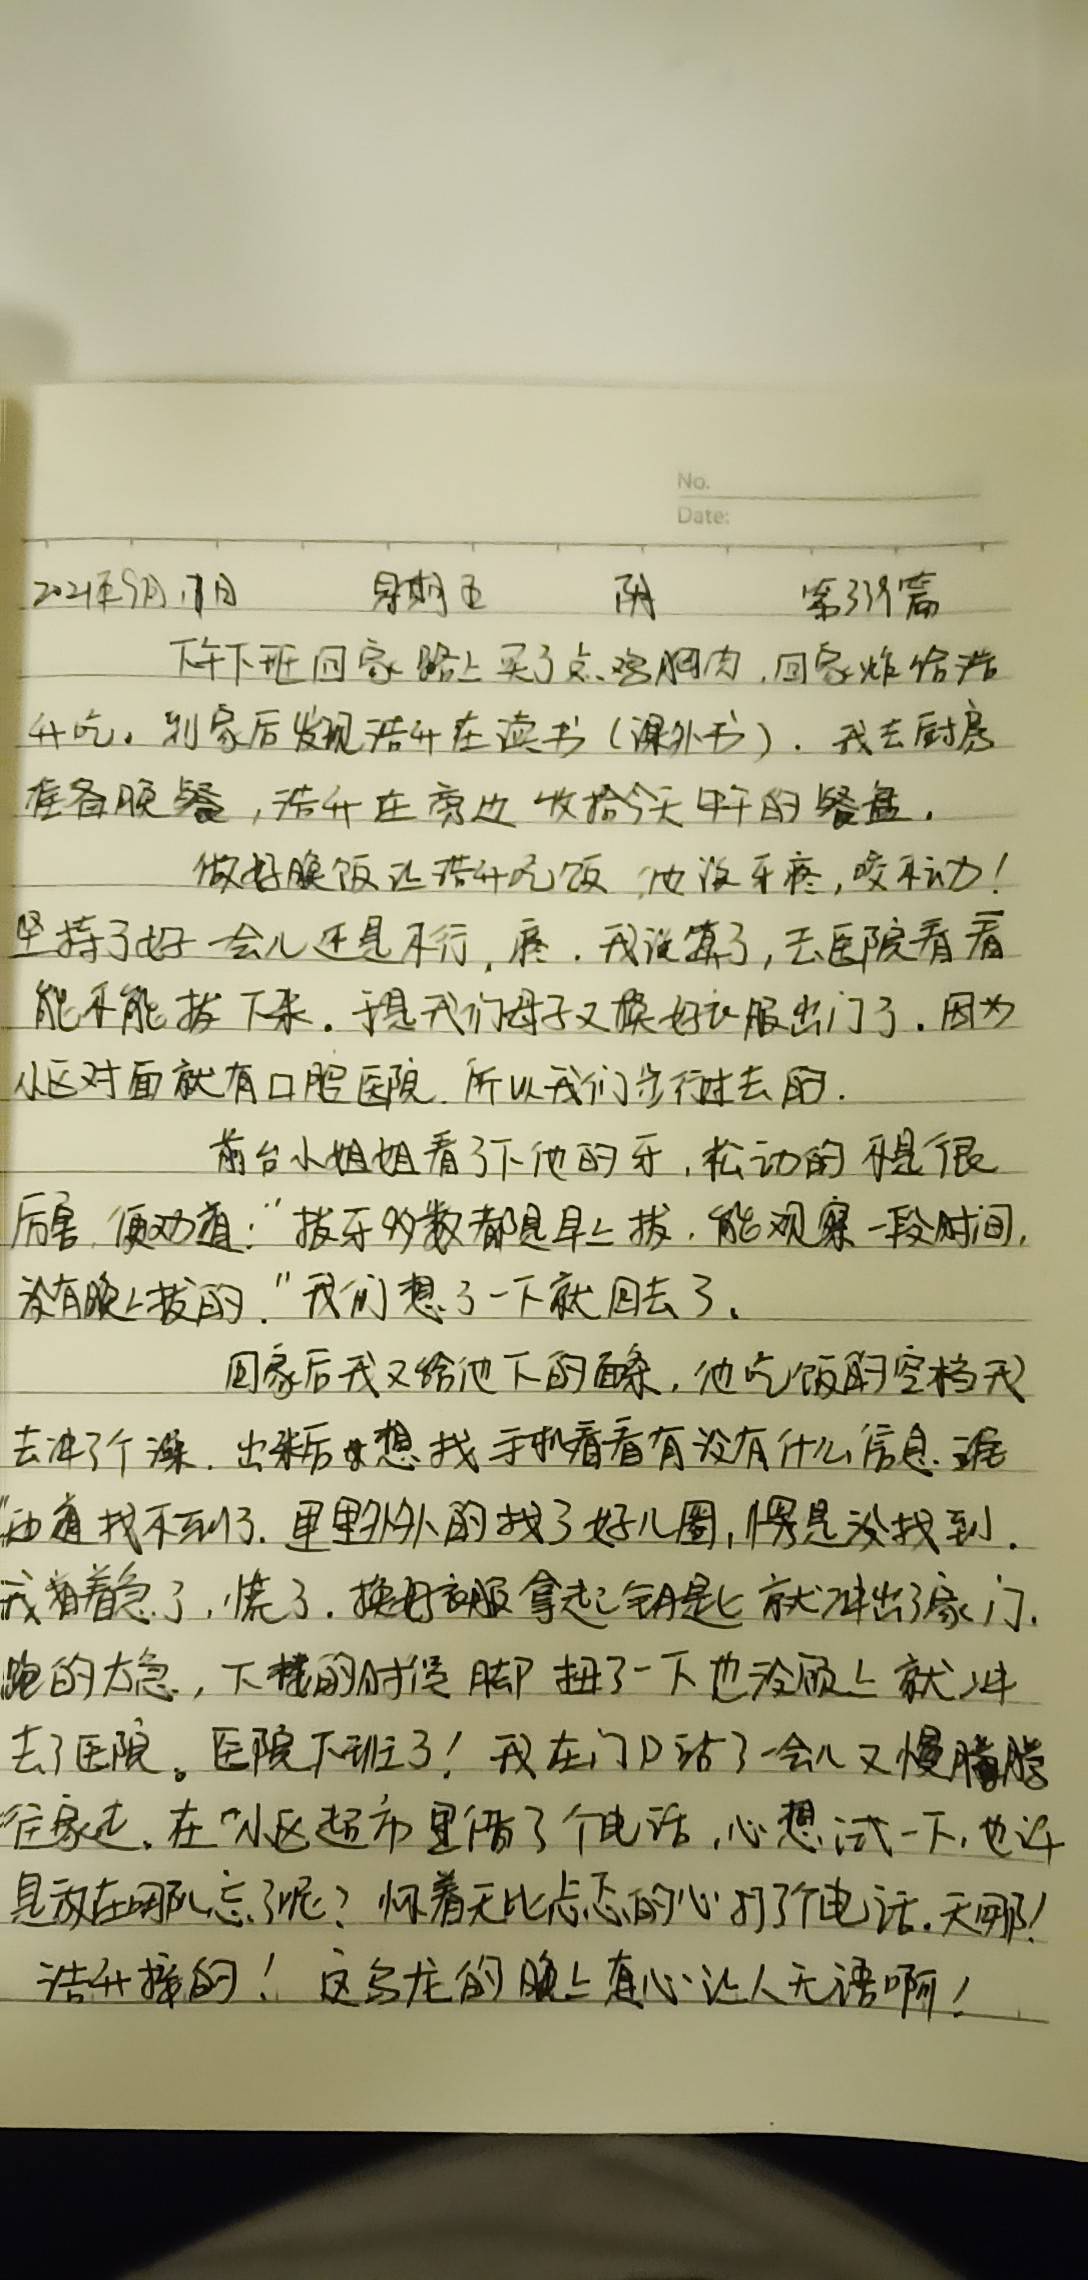 No.
Date:
2021年9月17日 星期五 阴 第339篇
下午下班回家路上买了点鸡胸肉，回家炸给浩
升吃。到家后发现浩升在读书（课外书）. 我去厨房
准备晚餐，浩升在旁边收拾今天中午的餐盘.
做好晚饭让浩升吃饭，他说牙疼，咬不动！
坚持了好一会儿还是不行，疼. 我说算了，去医院看看
能不能拔下来. 于是我们母子又换好衣服出门了. 因为
小区对面就有口腔医院. 所以我们步行过去的.
前台小姐姐看了下他的牙，松动的不是很
厉害，便劝道：“拔牙多数都是早上拔，能观察一段时间，
没有晚上拔的.”我们想了一下就回去了.
回家后我又给他下的面条，他吃饭的空档我
去冲了个澡. 出来后想找手机看看有没有什么信息
找不到了. 里里外外的找了好几圈，愣是没找到.
我着急了，慌了. 换好衣服拿起钥匙就冲出了家门.
跑的太急，下楼的时候脚扭了一下也没顾上就冲
去了医院。医院下班了！我在门口站了一会儿又慢腾腾
往家走. 在小区超市里借了个电话，心想试一下，也许
是放在哪儿忘了呢？怀着无比忐忑的心打了个电话. 天哪！
浩升接的！这乌龙的晚上真心让人无语啊！